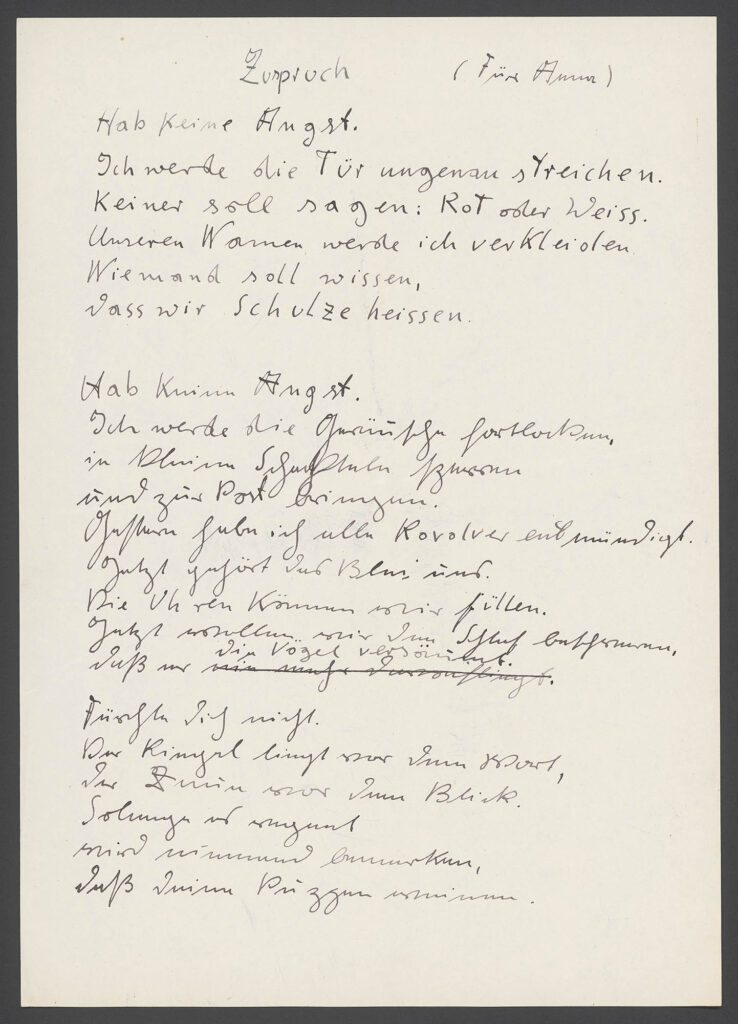 Zuspruch (Für Anna)
Hab keine Angst.
Ich werde die Tür ungenau streichen.
Keiner soll sagen: Rot oder Weiss.
Unseren Namen werde ich verkleiden
Niemand soll wissen,
dass wir Schulze heissen.
Hab keine Angst.
Ich werde die Geräusche fortlocken,
in kleine Schachteln sperren
und zur Post bringen.
Gestern habe ich alle Rovolver entmündigt.
Jetzt gehört das Blei uns.
Die Uhren können wir füllen.
Jetzt wollen wir den Schlaf beschweren,
die Vögel versäumt.
daß er nie mehr davonfliegt.
Fürchte dich nicht.
Der Riegel liegt vor dem Wort,
der Zaun vor dem Blick.
Solange es regnet
wird niemand bemerken,
daß deine Puppen weinen.